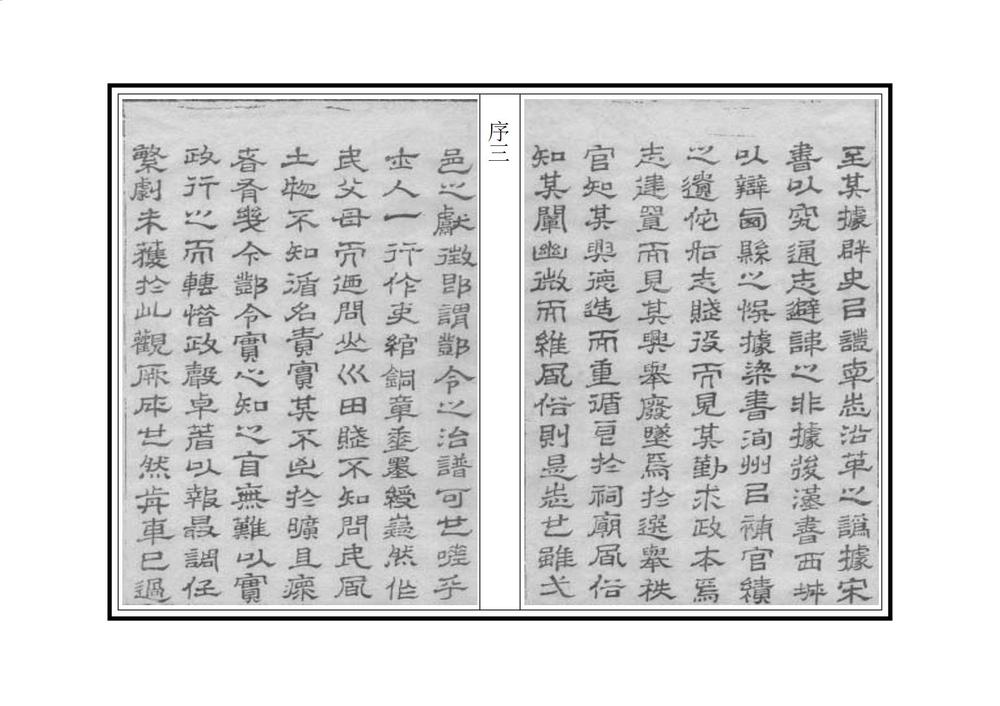 至其據群史㠯證志沿革之譌據宋
書以究通志避諱之非據後漢書西城
以辯旬縣之悞據梁書洵州㠯補官績
之遺佗如志賦役而見其勤求政本焉
志建置而見其興舉廢墜焉於選舉秩
官知其興德造而重循良於祠廟風俗
知其闡幽微而維風俗則是志也雖弌
序三
邑之獻徵即謂酆令之治譜可也嗟乎
士人一行作吏綰銅章垂墨綬藐然作
民父母而迺問山川田賦不知問民風
土物不知循名責實其不㐫於曠且瘝
者有幾今酆令實心知之自無難以實
政行之而轉惜政聲卓著以報最調任
繁劇未獲於此觀厥成也然歬車已過